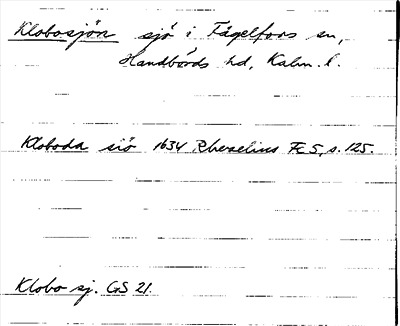 Klobosjön sjö i Fågelfors sn,
Handbörds hd, Kalm. l.
Kloboda siö 1634 Rhezelius Fc 5, s. 125.
Klobo sj. GS 21.